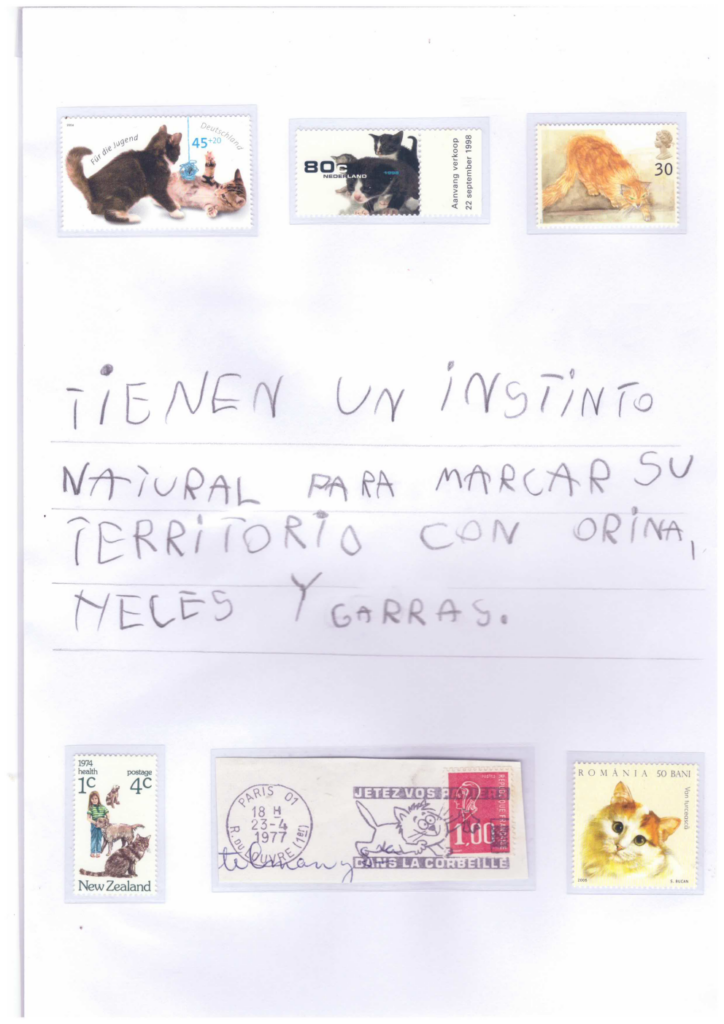 Für die Jugend
Deutschland
45+20
80c
NEDERLAND
1998
Aanvang verkoop
22 september 1998
30
TIENEN UN INSTINTO
NATURAL PARA MARCAR SU
TERRITORIO CON ORINA,
HECES Y GARRAS.
1974
health postage
1c 4c
New Zealand
PARIS 01
18 H
23-4
1977
R. DU LOUVRE (1er)
JETEZ VOS
DANS LA CORBEILLE
1.00
ROMÂNIA 50 BANI